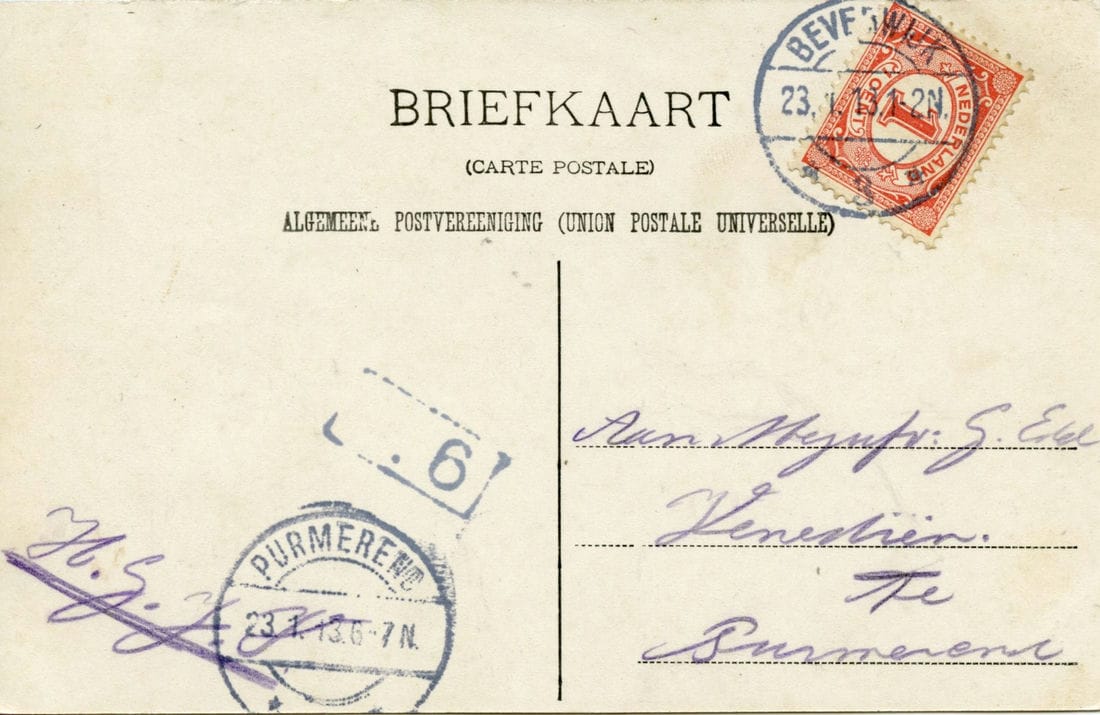 BRIEFKAART
(CARTE POSTALE)
ALGEMEENE POSTVEREENIGING (UNION POSTALE UNIVERSELLE)
BEVERWIJK
23.1.13.1-2N.
3
NEDERLAND
1
CENT
6
PURMEREND
23.1.13.6-7N.
H. G.
Aan Mejufr: G.
Venediën.
Te
Purmerend